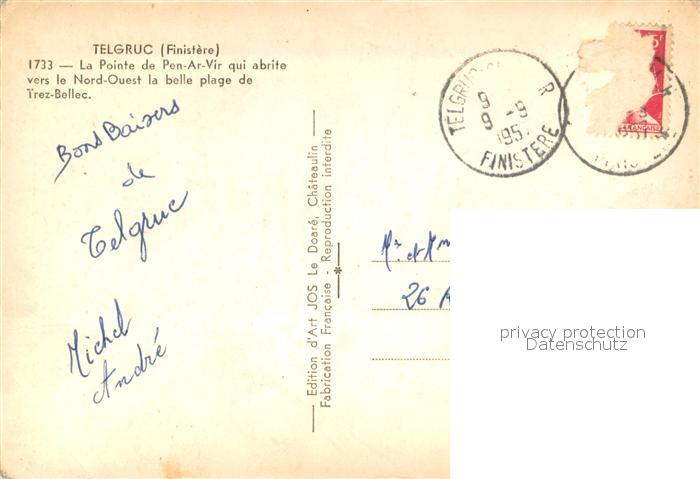 TELGRUC (Finistère)
1733 — La Pointe de Pen-Ar-Vir qui abrite
vers le Nord-Ouest la belle plage de
Trez-Bellec.
Bons Baisers
de
Telgruc
Michel
André
Edition d'Art JOS Le Doaré, Châteaulin
Fabrication Française - Reproduction interdite
TELGRUC
R
9 -9
9
195
FINISTERE
5F
FRANÇAISE
Mr et Mme
26
privacy protection
Datenschutz